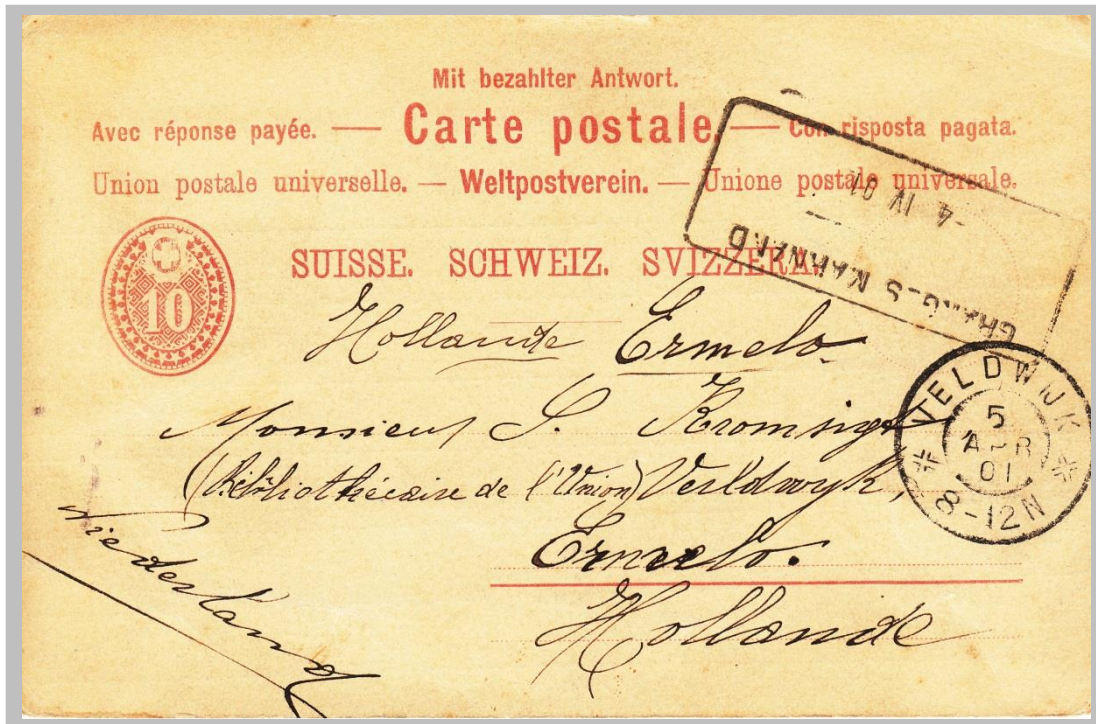 Mit bezahlter Antwort.
Avec réponse payée. — Carte postale. — Con risposta pagata.
Union postale universelle. — Weltpostverein. — Unione postale universale.
10
SUISSE. SCHWEIZ. SVIZZERA.
-4 IV 01
Hollande Ermelo.
Monsieur S. Kromsigt
(Bibliothécaire de l'Union) Veildwyk,
Ermelo.
Hollande
Niederland
VELDWIJK
5
APR
01
8-12N